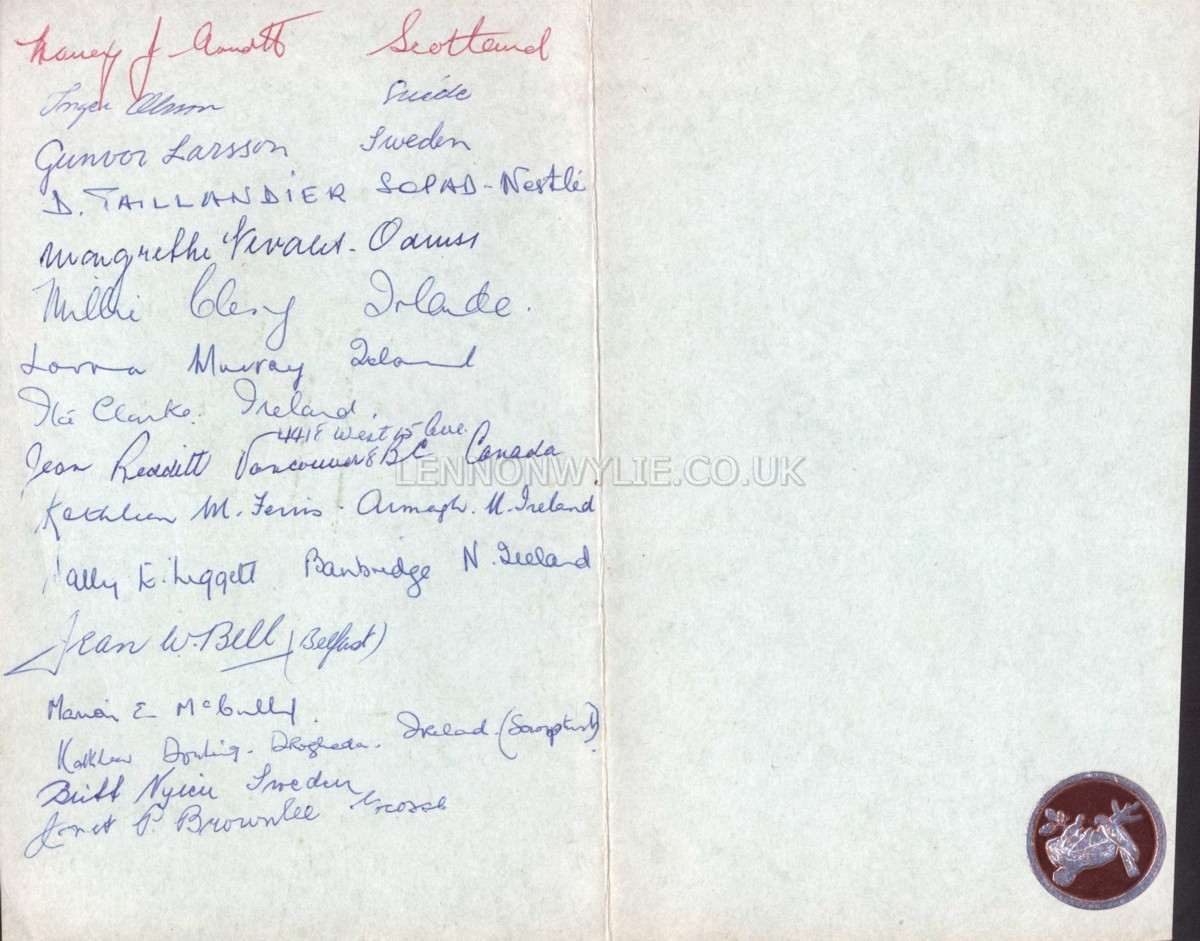 Nancy J. Scotland
Inger Olsson Suède
Gunvor Larsson Sweden
D. TAILLANDIER SOPAD - Nestlé
Margrethe
Millie Clery Irlande.
Lorna Murray Ireland
Ita Clarke. Ireland.
4418 West 15 Ave.
Jean Redditt Vancouver 8 BC Canada
LENNONWYLIE.CO.UK
Kathleen M. Ferris - Armagh. N. Ireland
Sally E. Liggett Banbridge N. Ireland
Jean W. Bell (Belfast)
Marion E McCully.
Kathleen Dowling - Drogheda. Ireland. (Soroptimist)
Britt Sweden
Janet P. Brownlee Ecosse